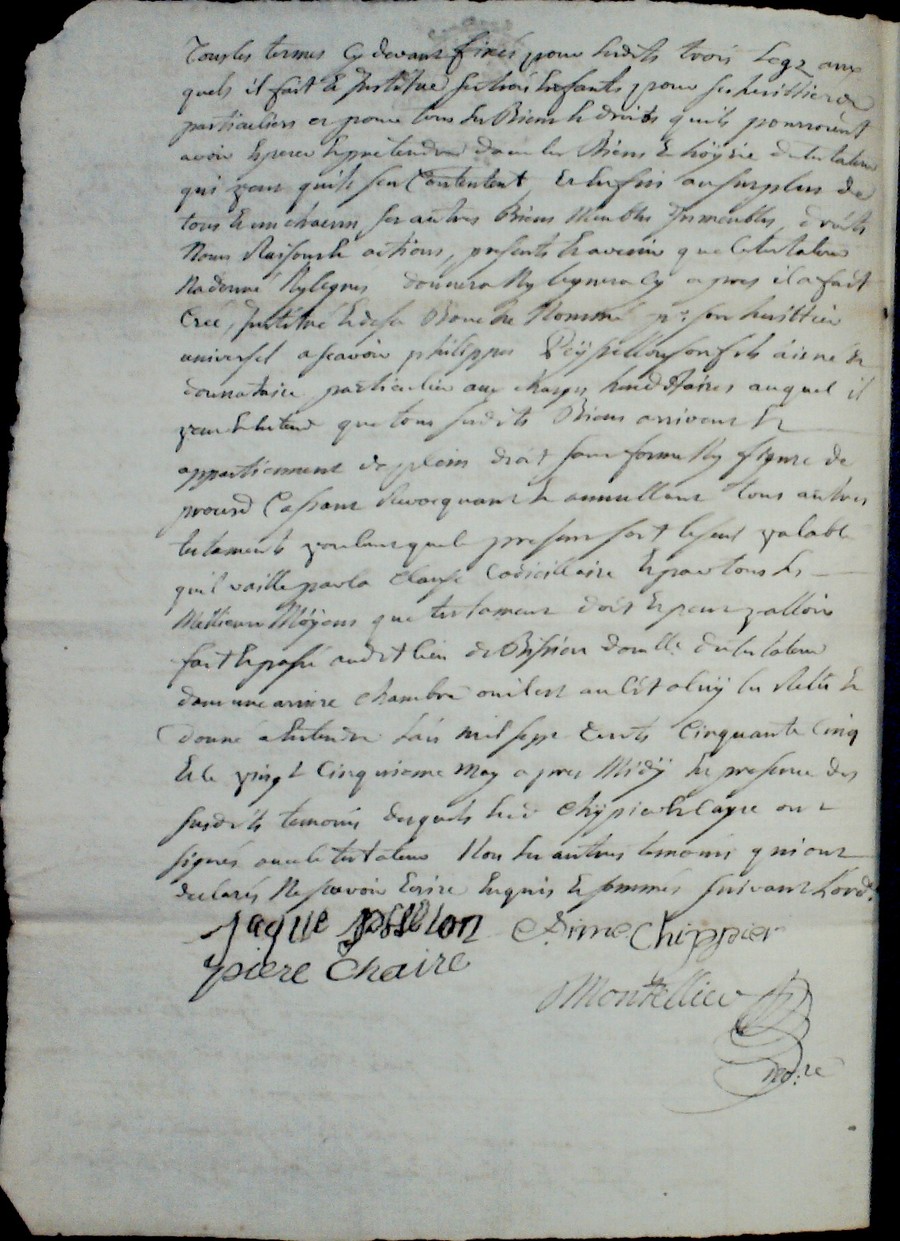 Tous les termes cy devant fixés pour lesdits trois Legz aux
quels il fait & Institue ses trois Enfants pour ses heritiers
particuliers et pour tous les Biens & droits quils pourroient
avoir Esperer & pretendre dans les Biens & hoyrie du testateur
qui veut quils sen Contentent, Et Enfin au surplus de
tous & un chacun ses autres Biens Meubles Immeubles droits
Noms Raisons & actions, presents & avenir que le testateur
Na donné Ny legués donnera Ny leguera Cy apres il a fait
Créé, Institué & de sa Bouche Nommé pr. son heritier
universel a scavoir philippes Peyssellon son fils ainé &
donnataire particulier aux charges hereditaires auquel il
veut & Entend que tous sesdits Biens arrivent &
appartiennent de plein droit sans forme Ny figure de
procez Cassant Revocquant & annullant tous autres
testaments voulant que le present soit le seul valable
quil vaille par la Clause Codicillaire & par tous les
Meilleurs Moyens que testament doit & peut valloir
fait & passé audit lieu de Bissieu domlle. du testateur
dans une arriere chambre ou il est au lit a luy leu Relu &
donné a Entendre Lan mil sept Cents Cinquante Cinq
& le vingt Cinquieme May apres Midÿ En presence des
susdits temoins desquels led. Chÿpier & Cayre ont
signés avec le testateur Non les autres temoins qui ont
declarés Ne scavoir Ecrire Enquis & sommés suivant Lord.
Jaque psselon Aime Chippier
piere Chaire
Montellier
no.re